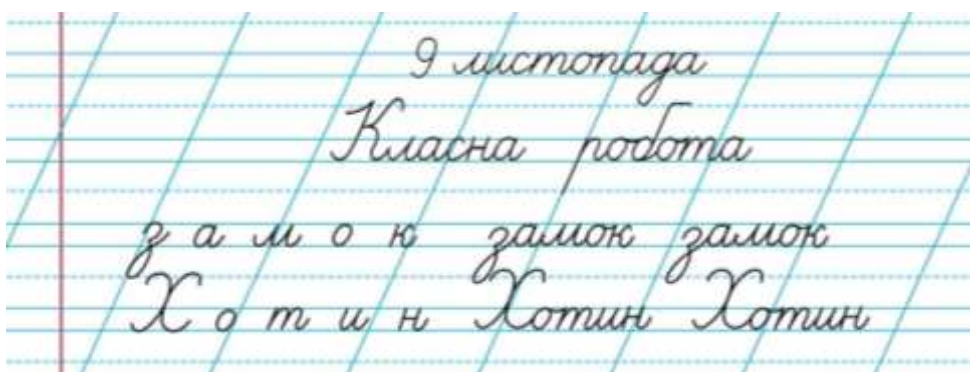 9 листопада
Класна робота
з а м о к замок замок
Х о т и н Хотин Хотин